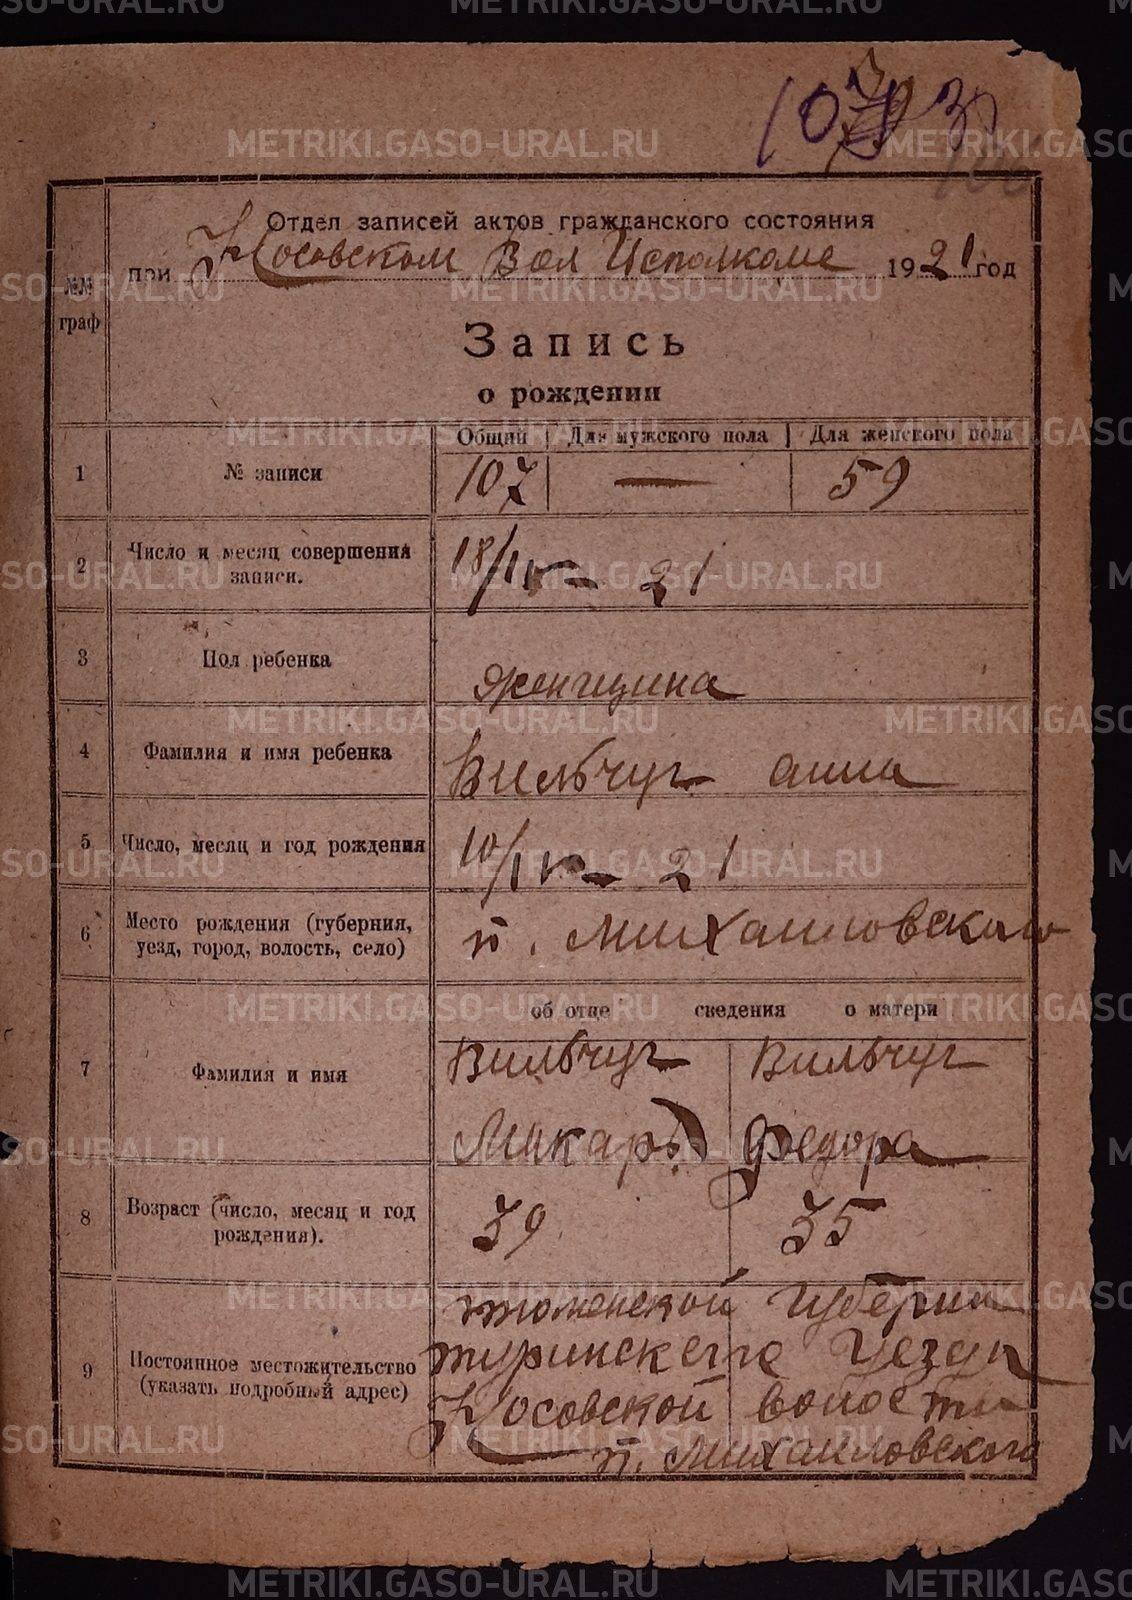 Отдел записей актов гражданского состояния
при Носовском Вол Исполкоме 1921 год
№№ граф
Запись
о рождении
Общий Для мужского пола Для женского пола
1 № записи 107 — 59
2 Число и месяц совершения записи. 18/IV – 21
3 Пол ребенка женщина
4 Фамилия и имя ребенка Вильчуг анна
5 Число, месяц и год рождения 10/IV – 21
6 Место рождения (губерния, уезд, город, волость, село) п. Михаиловского
об отце сведения о матери
7 Фамилия и имя Вильчуг Макаръ Вильчуг Федора
8 Возраст (число, месяц и год рождения). 39 35
9 Постоянное местожительство (указать подробный адрес) тюменской губернии
туринскего уезда
Носовской волости
п. Михаиловского
METRIKI.GASO-URAL.RU